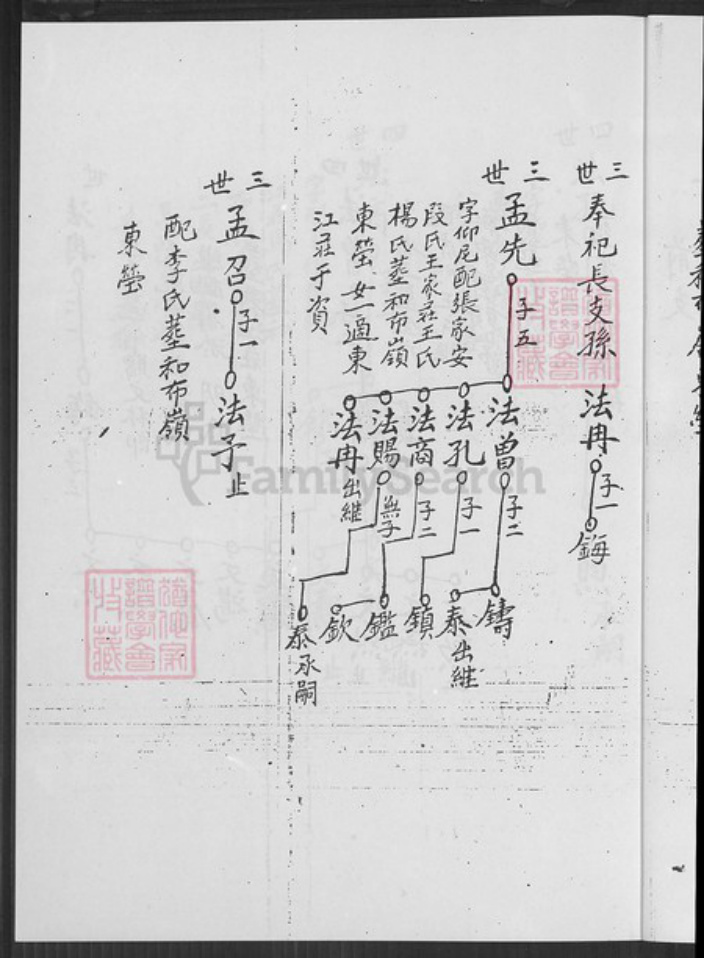 三世
奉祀長支孫 法冉 子一 鋂
三世
孟先 子五
字仰尼配張家安
段氏王家莊王氏
楊氏墓和布嶺
東塋 女一適東
江莊于資
法曾 子二
法孔 子一
法商 子二
法賜 無子
法冉出継
鑄
泰出継
鎮
鑑
欽
泰承嗣
三世
孟召 子一 法予止
配李氏墓和布嶺
東塋
FamilySearch